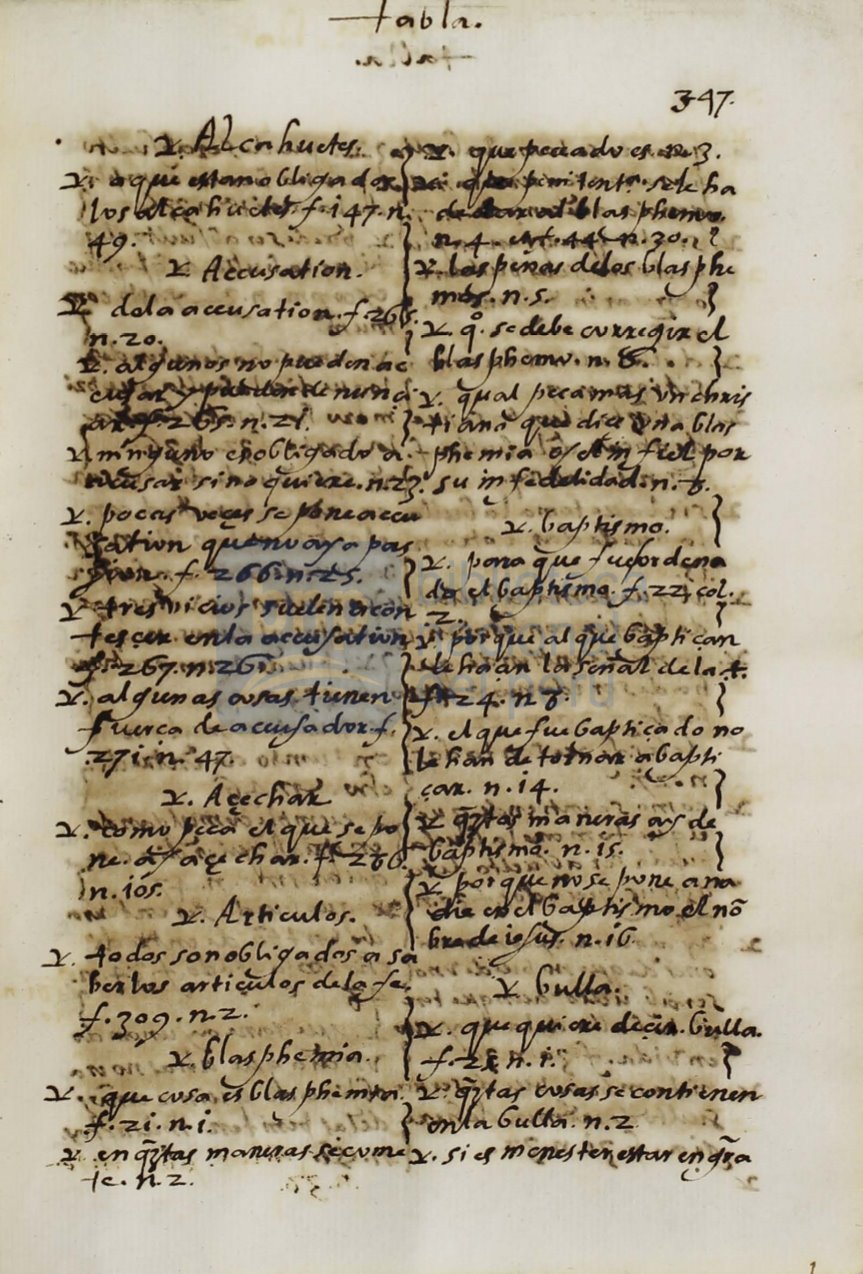 tabla.
347.
v. Alcahuetes.
v. a que estan obligados
los alcahuetes. f. 147. n.
49.
v. Accusation.
v. dela accusation. f. 265.
n. 20.
v. algunos no pueden ac
cusar y pueden denunci
ar f. 265. n. 21.
v. ninguno es obligado a
acusar si no quiere. n. 23.
v. pocas veces se pone accu
sation que no aya pas
sion. f. 266. n. 25.
v. tres vicios suelen acon
tescer en la accusation
f. 267. n. 26.
v. algunas cosas tienen
fuerca de accusador. f.
271. n. 47.
v. Acechar
v. como peca el que se po
ne a açechar. f. 286.
n. 105.
v. Articulos.
v. todos son obligados a sa
ber los articulos dela fe.
f. 309. n. 2.
v. blasphemia.
v. que cosa es blasphemia.
f. 21. n. 1.
v. en q̃tas maneras se come
te. n. 2.
v. que peccado es. n. 3.
v. que penitentia se le ha
de dar al blasphemo.
n. 4. et f. 44. n. 30.
v. las penas delos blasphe
mos. n. 5.
v. qº. se debe corregir el
blasphemo. n. 8.
v. qual peca mas vn chris
tiano que dice vna blas
phemia o el infiel por
su infidelidad. n. 8.
v. baptismo.
v. para que fue ordena
do el baptismo. f. 22. col.
2.
v. porque al que baptican
le hacen la señal de la +.
f. 24. n. 8.
v. el que fue bapticado no
le han de tornar a bapti
çar. n. 14.
v. q̃tas maneras ay de
baptismo. n. 15.
v. porque no se pone a na
die en el baptismo el nõ
bre de iesus. n. 16.
v. bulla.
v. que quiere decir. bulla.
f. 28. n. 1.
v. q̃tas cosas se contienen
en la bulla. n. 2
v. si es menester estar en gr̃a
1